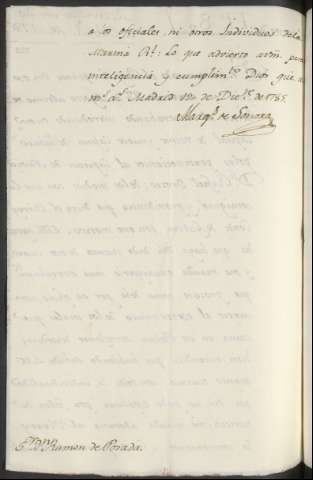 a los oficiales, ni otros Individuos de la
Marina Rl: Lo que advierto a vm. para
inteligencia, y cumplimto. Dios gue. a
vm. ms. as. Madrid de Dicre. de 1785.
Marqs. de Sonora
Sr. Dn. Ramon de Posada.